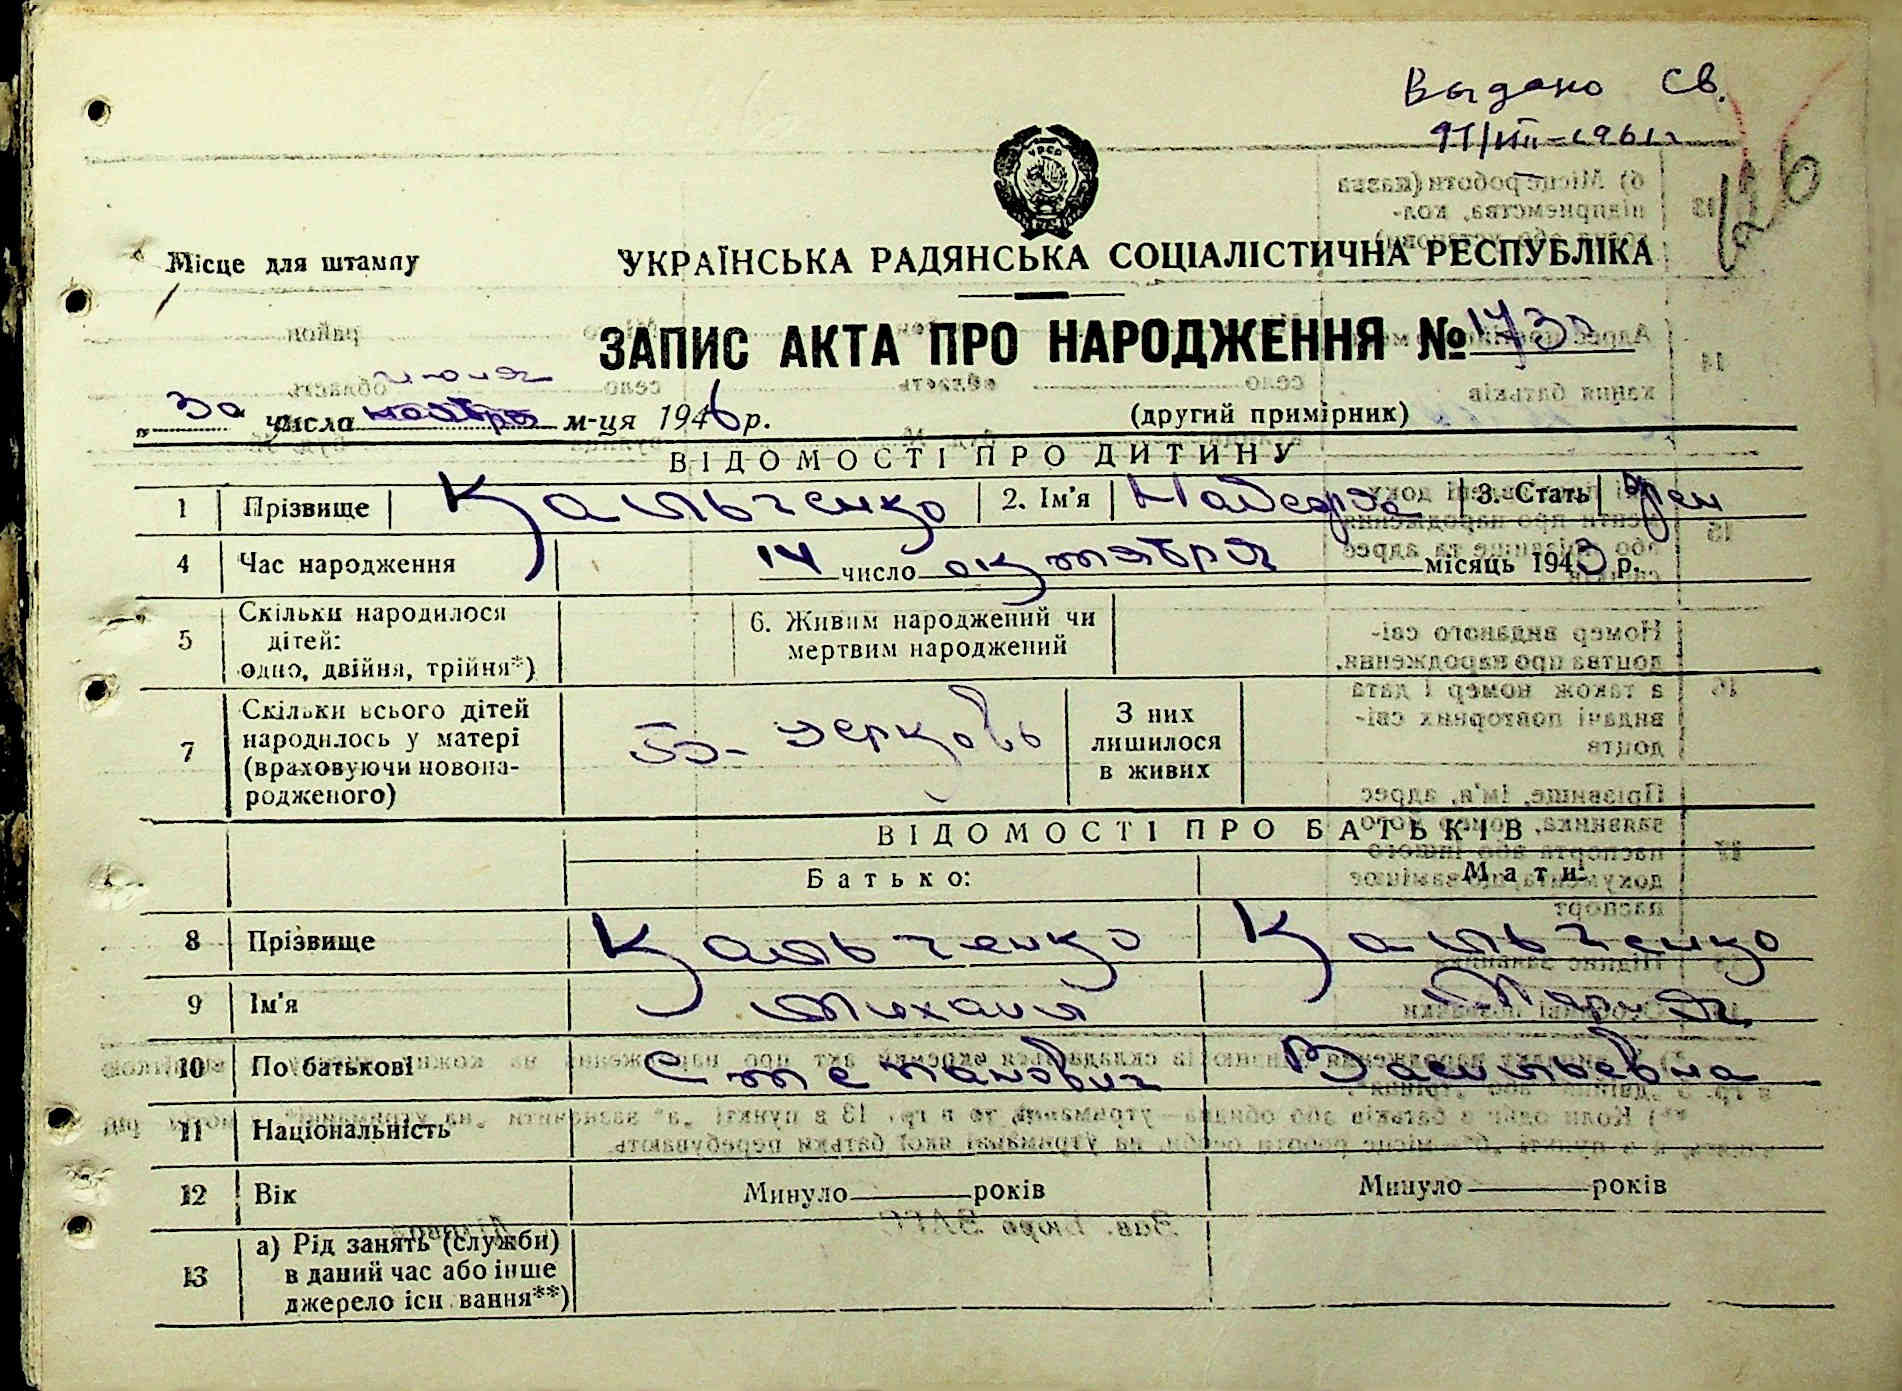 Выдано св.
УРСР
Місце для штампу
УКРАЇНСЬКА РАДЯНСЬКА СОЦІАЛІСТИЧНА РЕСПУБЛІКА
ЗАПИС АКТА ПРО НАРОДЖЕННЯ №
июня
„30 числа м-ця 1946 р. (другий примірник)
ВІДОМОСТІ ПРО ДИТИНУ
1 Прізвище Кальченко 2. Ім'я Надежда 3. Стать жен
4 Час народження 14 число октября місяць 1943 р.
5 Скільки народилося дітей: одно, двійня, трійня*) 6. Живим народжений чи мертвим народжений
7 Скільки всього дітей народилось у матері (враховуючи новонародженого) церковь З них лишилося в живих
ВІДОМОСТІ ПРО БАТЬКІВ
Батько: Мати:
8 Прізвище Кальченко Кальченко
9 Ім'я Михаил Мария
10 По батькові Степанович Васильевна
11 Національність
12 Вік Минуло років Минуло років
13 а) Рід занять (служби) в даний час або інше джерело існування**)